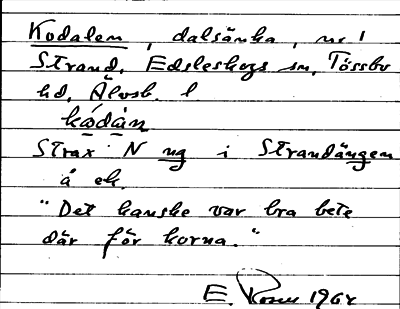 Kodalen, dalsänka, nr 1
Strand, Edsleskogs sn, Tössbo
hd, Älvsb. l
kódàn
Strax N ng i Strandängen
å ek.
"Det kanske var bra bete
där för korna."
E. 1964